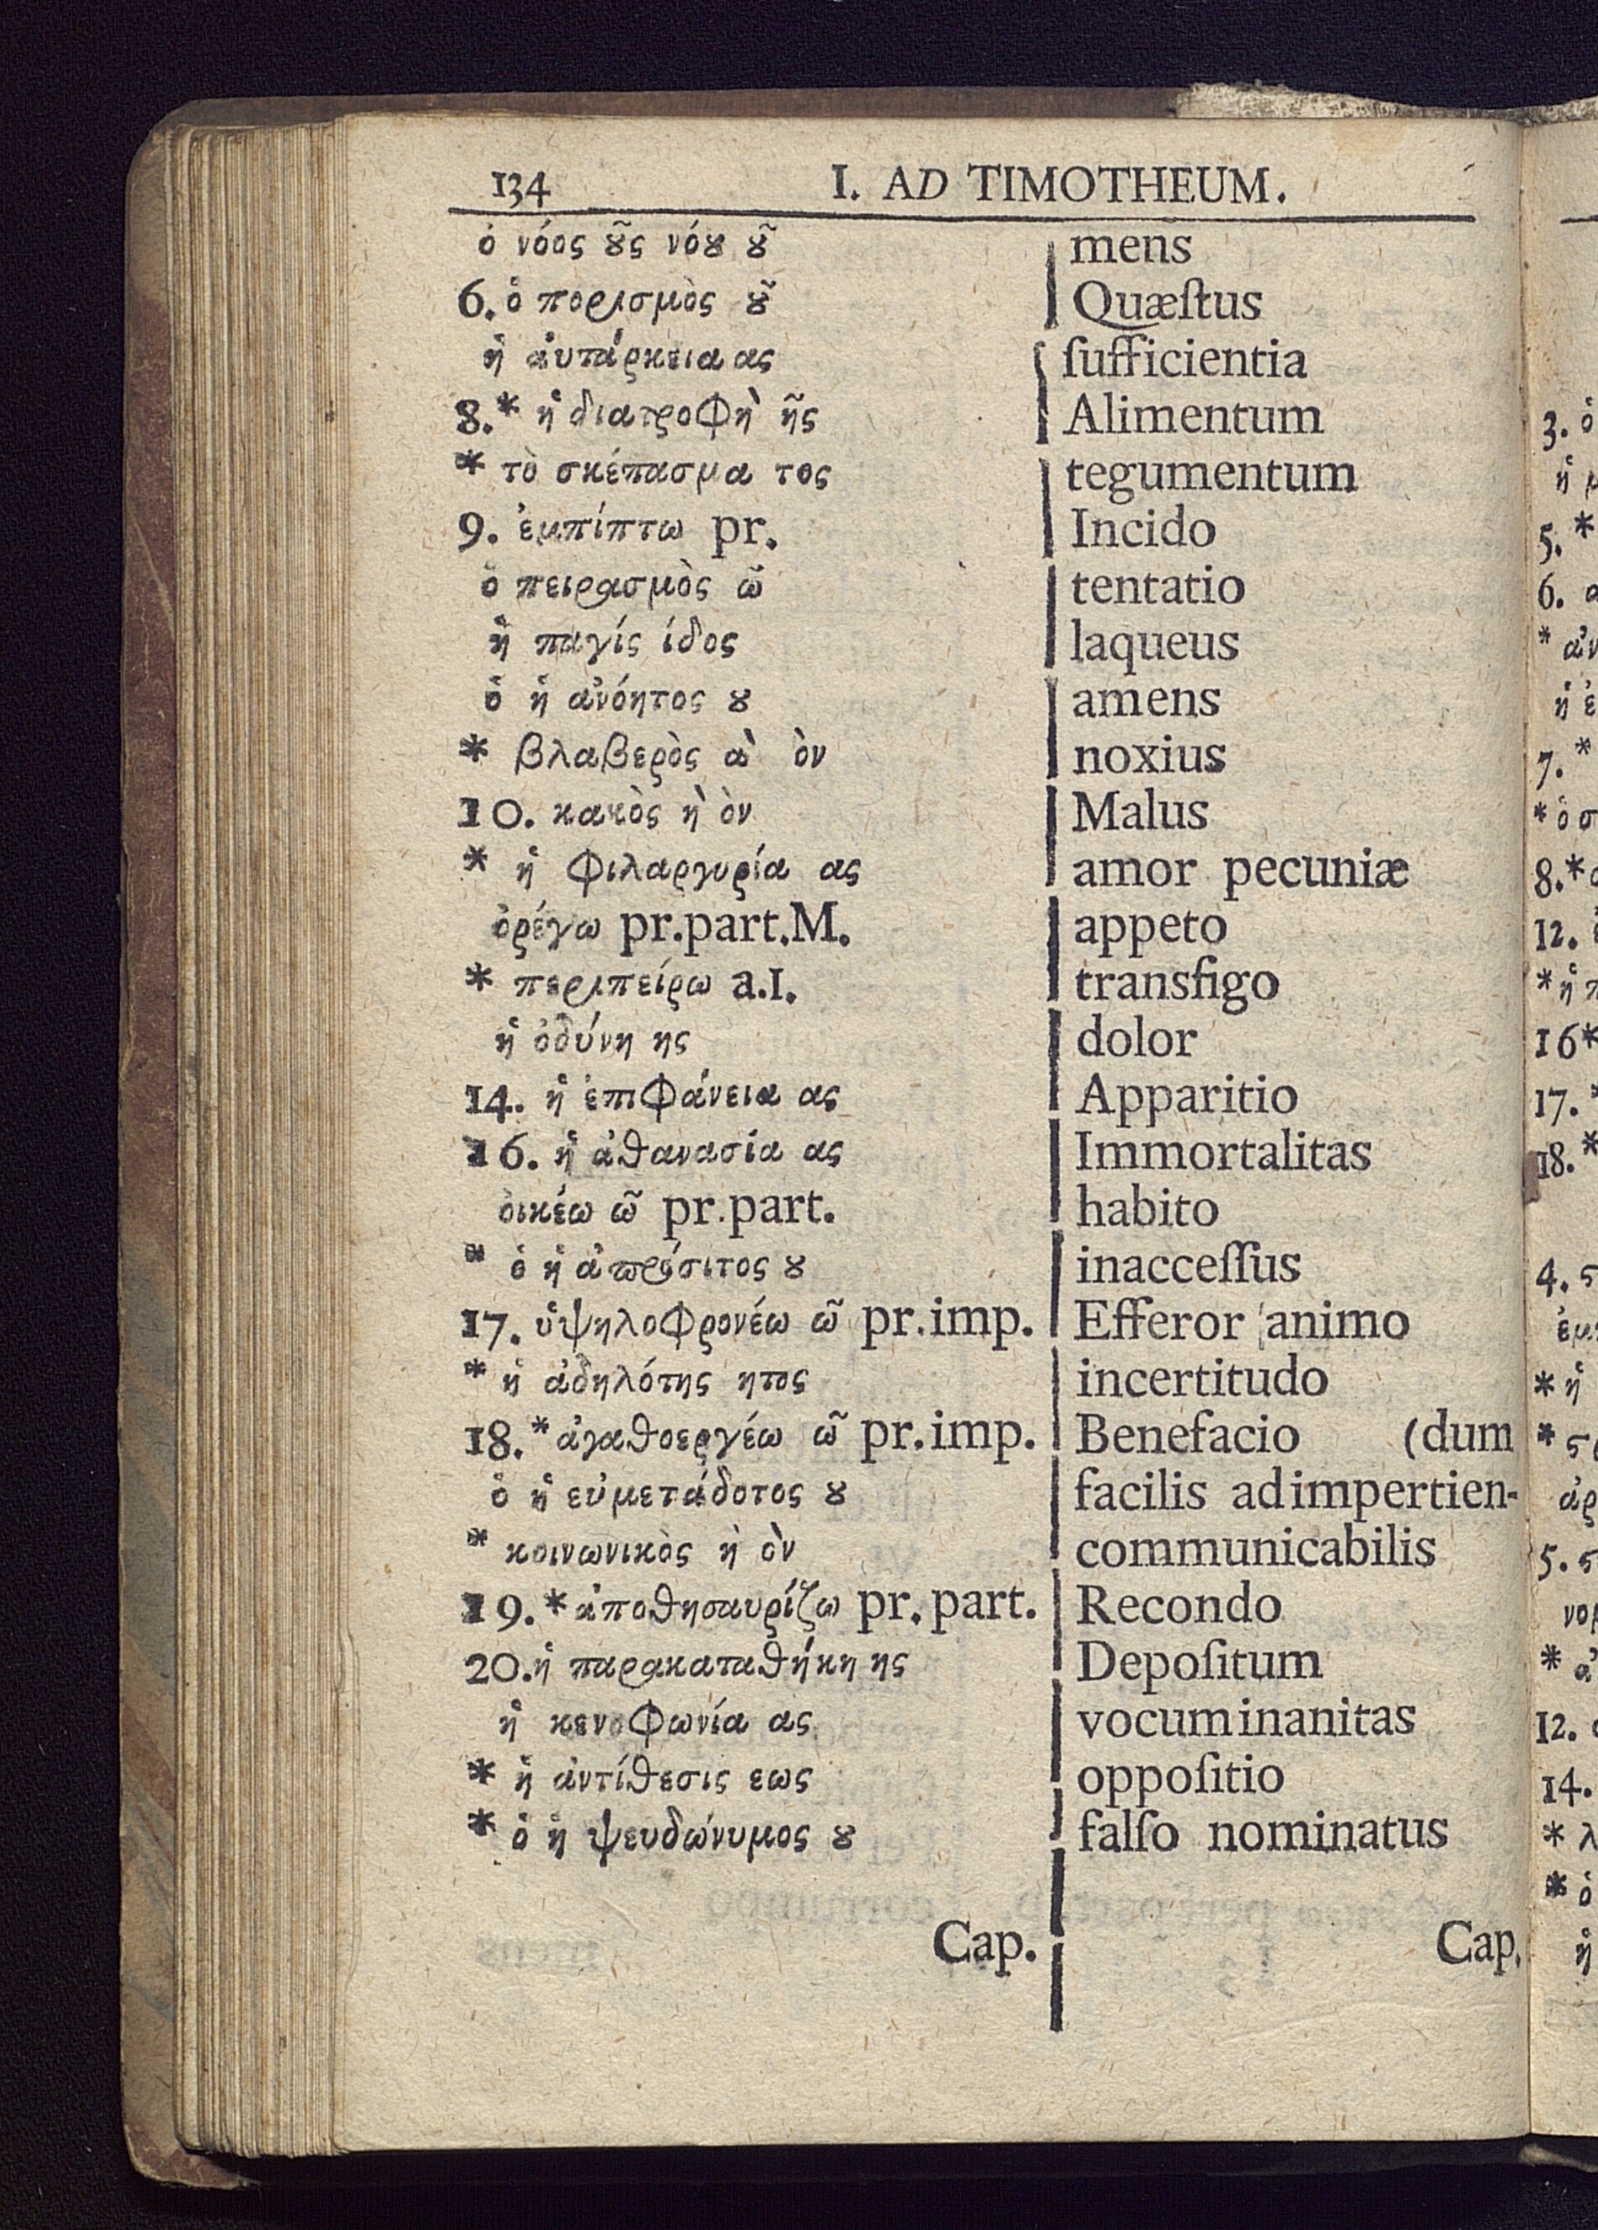 134 I. AD TIMOTHEUM.
ὁ νόος ȣ͂ς νόȣ ȣ͂ mens
6. ὁ πορισμὸς ȣ͂ Quæſtus
ἡ ἀυτάρκεια ας ſufficientia
8.* ἡ διατροφὴ ῆς Alimentum
* τὸ σκέπασμα τος tegumentum
9. ἐμπίπτω pr. Incido
ὁ πειρασμὸς ῶ tentatio
ἡ παγίς ίδος laqueus
ὁ ἡ ἀνόητος ȣ amens
* βλαβερὸς ὰ ὸν noxius
10. κακὸς ὴ ὸν Malus
* ἡ φιλαργυρία ας amor pecuniæ
ὀρέγω pr.part.M. appeto
* περιπείρω a.1. transfigo
ἡ ὀδύνη ης dolor
14. ἡ ἐπιφάνεια ας Apparitio
16. ἡ ἀθανασία ας Immortalitas
ὀικέω ῶ pr.part. habito
* ὁ ἡ ἀπρόσιτος ȣ inacceſſus
17. ὑψηλοφρονέω ῶ pr.imp. Efferor animo
* ἡ ἀδηλότης ητος incertitudo
18.* ἀγαθοεργέω ῶ pr.imp. Benefacio (dum
ὁ ἡ εὐμετάδοτος ȣ facilis ad impertien-
* κοινωνικὸς ὴ ὸν communicabilis
19.* ἀποθησαυρίζω pr.part. Recondo
20. ἡ παρακαταθήκη ης Depoſitum
ἡ κενοφωνία ας vocum inanitas
* ἡ ἀντίθεσις εως oppoſitio
* ὁ ἡ ψευδώνυμος ȣ falſo nominatus
Cap. Cap.